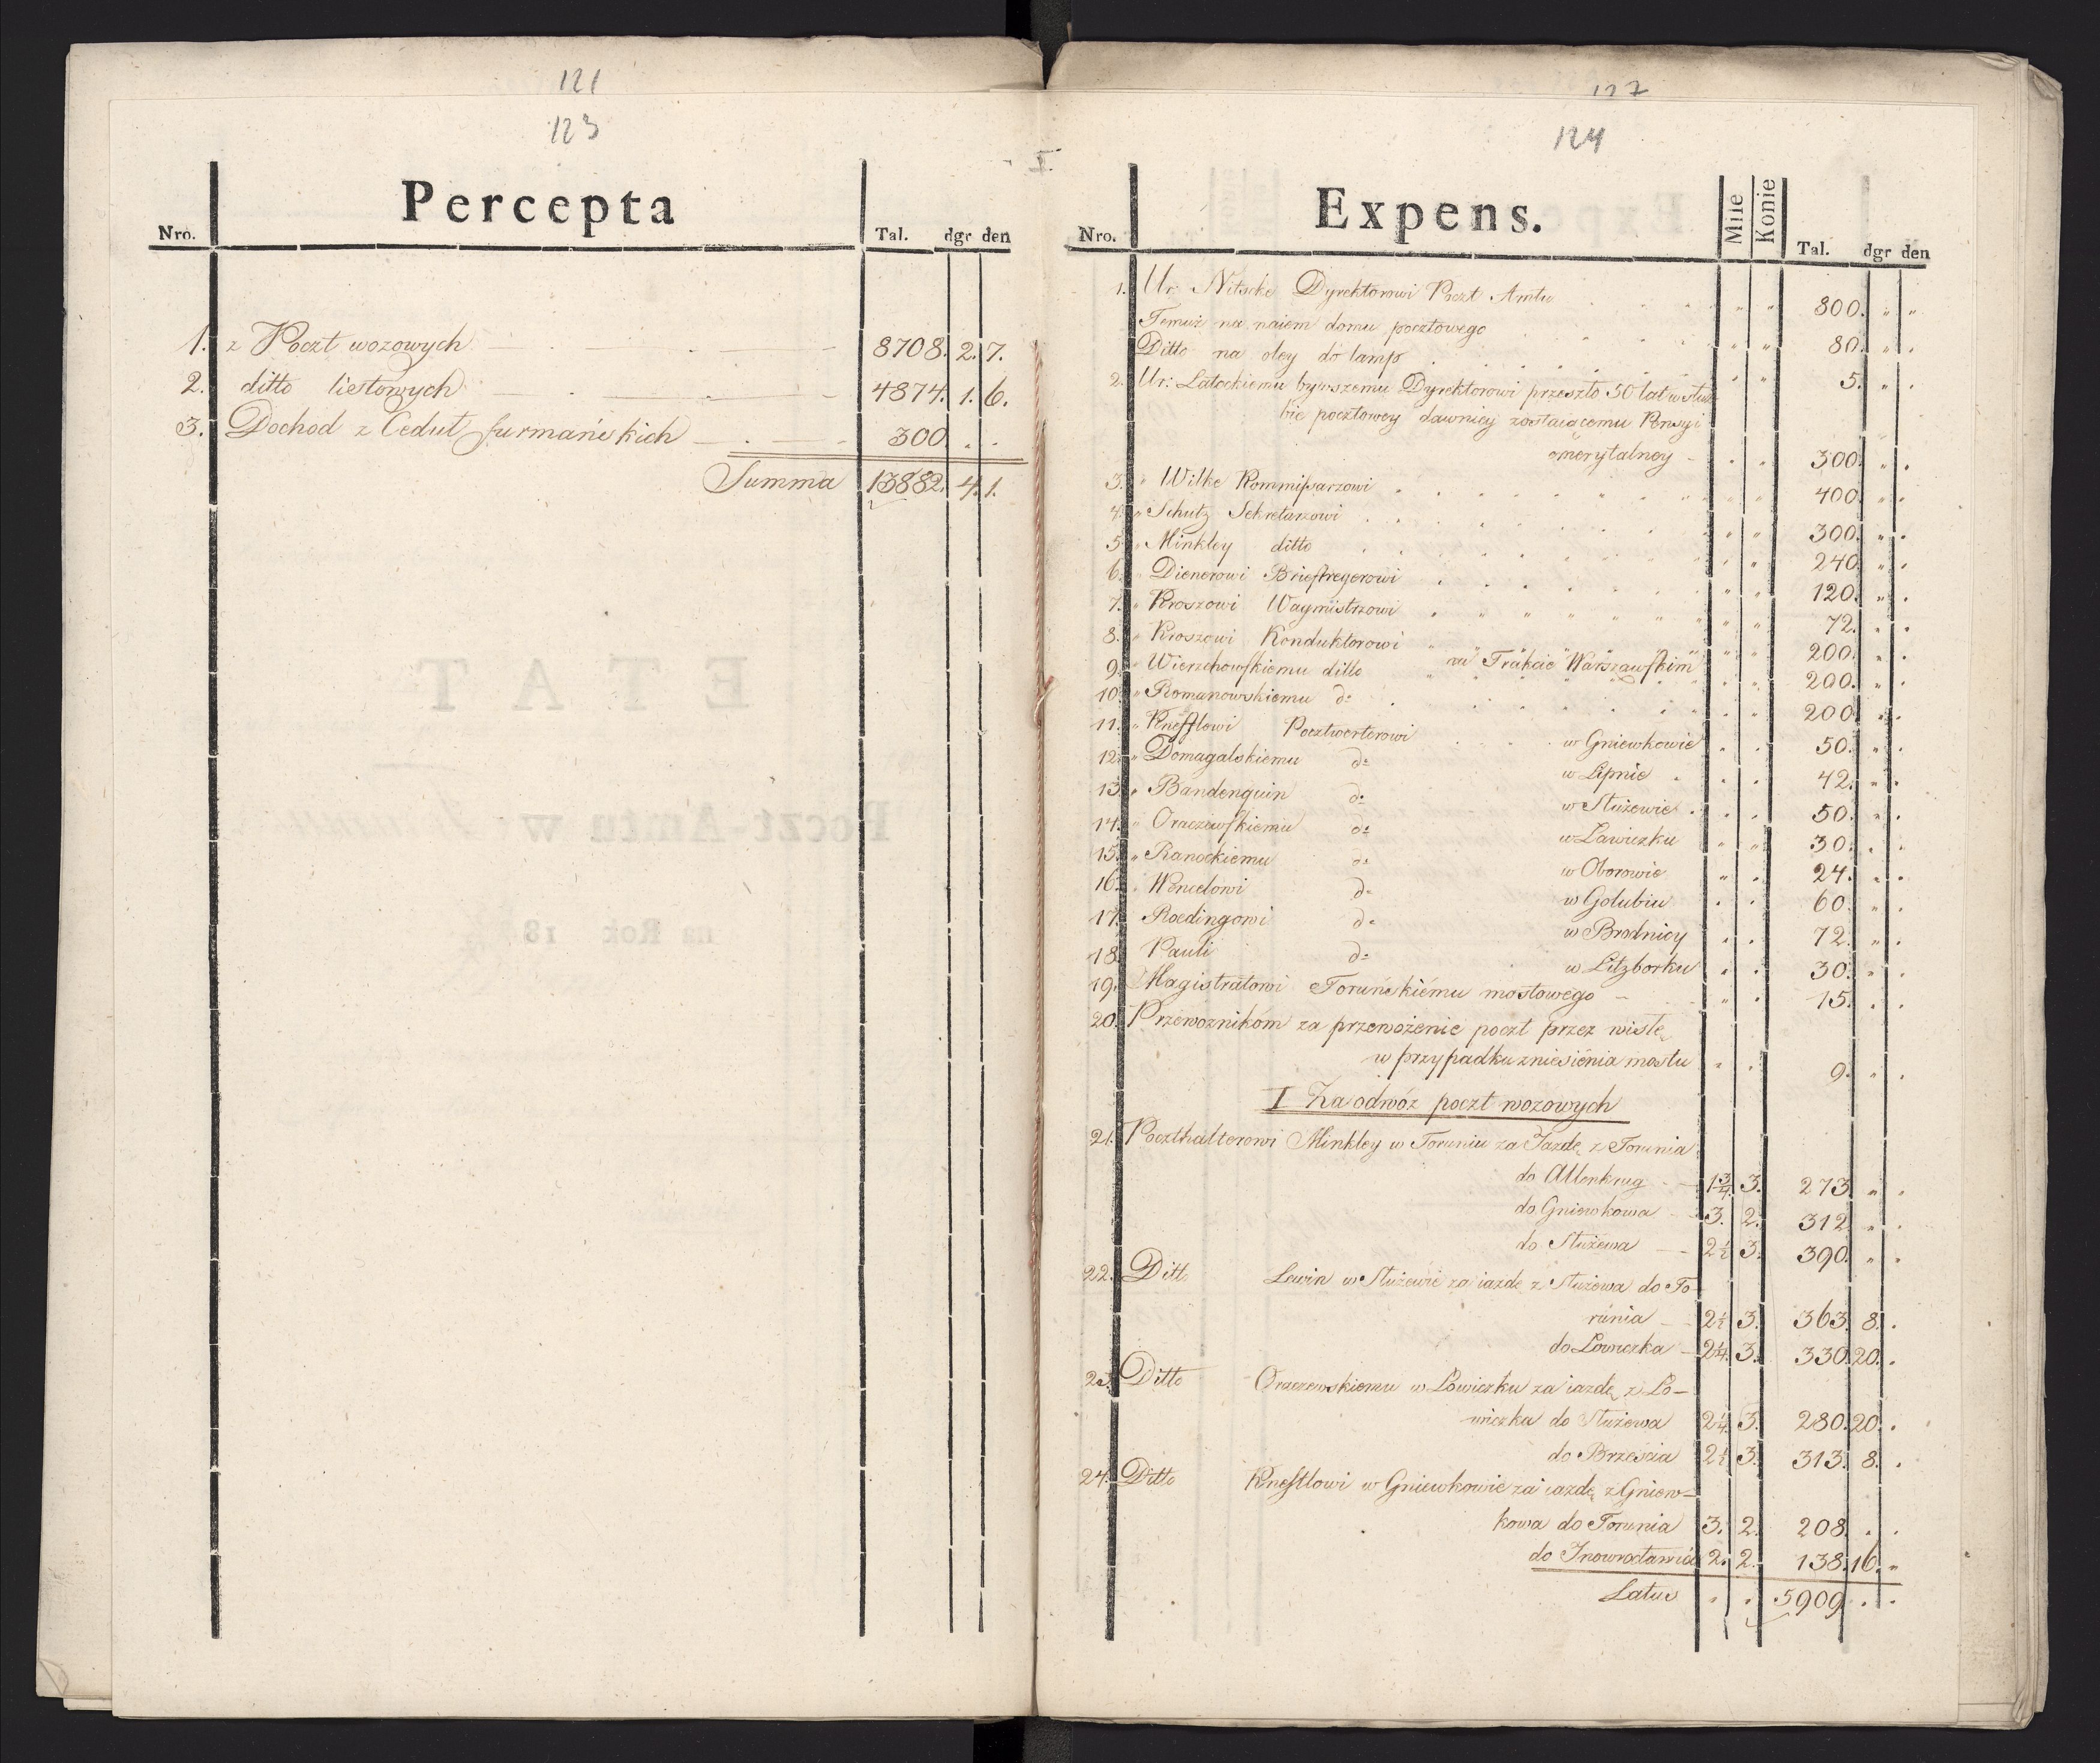 121
123
Percepta
Nro. Tal. dgr den
1. z Poczt wozowych 8708. 2. 7.
2. ditto listowych 4874. 1. 6.
3. Dochod z Cedut furmańskich 300 . .
Summa 13882. 4. 1.
124
Expens.
Nro. Mile Konie Tal. dgr den
1. Ur: Nitschke Dyrektorowi Poczt Amtu " " 800. " "
Temuż na naiem domu pocztowego " " 80. " .
Ditto na oley do lamp " " 5. " .
2. Ur: Latockiemu bywszemu Dyrektorowi przeszło 50 lat w służ
bie pocztowey dawnicy zostaiącemu Pensyi
emerytalney . . 300. " .
3. " Wilke Kommissarzowi " " 400. " .
4. " Schutz Sekretarzowi " " 300. " .
5. " Minkley ditto " " 240. " .
6. " Dienerowi Brieftregerowi " " 120. " .
7. " Kroszowi Wagmistrzowi " " 72. " .
8. " Kroszowi Konduktorowi " " 200. " .
9. " Wierzchowskiemu ditto na Trakcie Warszawskim " " 200. " .
10. " Romanowskiemu do . " 200. " .
11. " Knefflowi Pocztwerterowi w Gniewkowie . . 50. " .
12. " Domagalskiemu do w Lipnie . . 42. " .
13. " Bandenquin do w Służewie . . 50. " .
14. " Oraczewskiemu do w Lawiczku " " 30. . .
15. " Ranockiemu do w Oborowie " . 24. " .
16. " Wencelowi do w Golubiu . . 60. " .
17. Roedingowi do w Brodnicy . . 72. " .
18. Pauli do w Litzborku . . 30. " .
19. Magistratowi Toruńskiému mostowego " . 15. . .
20. Przewoznikóm za przewożenie poczt przez wisłę
w przypadku zniesiénia mostu " . 9. " .
I Za odwóz poczt wozowych
21. Poczthalterowi Minkley w Toruniu za Jazdę z Torunia
do Allenkrug 1¾ 3. 273. " .
do Gniewkowa 3. 2. 312. " .
do Służewa 2½ 3. 390. " .
22. Ditto Lewin w Służewie za iazdę z Służewa do To-
runia 2½ 3. 363. 8. .
do Lowiczka 2¼ 3. 330. 20. .
23. Ditto Oraczewskiemu w Lowiczku za iazdę z Lo-
wiczka do Służewa 2¼ 3. 280. 20. .
do Brzescia 2½ 3. 313. 8. .
24. Ditto Knefflowi w Gniewkowie za iazdę z Gniew-
kowa do Torunia 3. 2. 208. . .
do Inowrocławia 2. 2. 138. 16. "
Latus " . 5909. . .